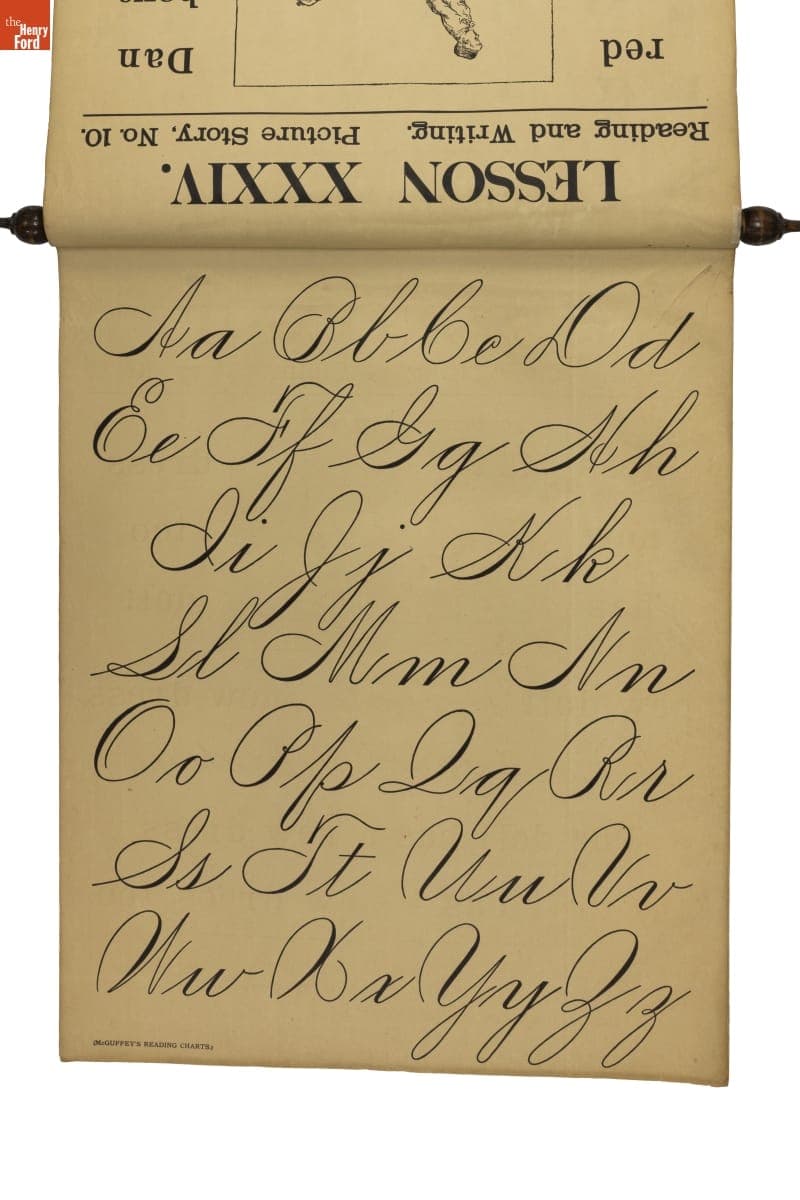 the
Henry
Ford
boys
Dan
red
Reading and Writing. Picture Story, No. 10.
LESSON XXXIV.
Aa Bb Cc Dd
Ee Ff Gg Hh
Ii Jj Kk
Ll Mm Nn
Oo Pp Qq Rr
Ss Tt Uu Vv
Ww Xx Yy Zz
(McGUFFEY'S READING CHARTS.)